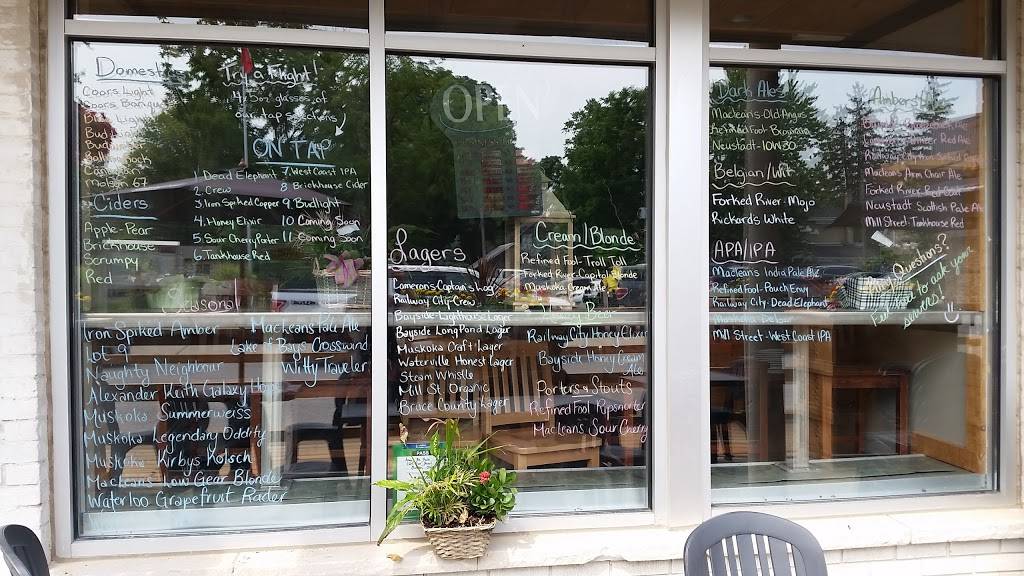 Domest
Coors Light
Coors Banquet
Bud Light
Molson 67
Ciders
Apple-Pear
Brickhouse
Scrumpy
Red
Try a Flight!
4 5oz glasses of
our tap selections
ON TAP
1. Dead Elephant
2. Crew
3. Iron Spiked Copper
4. Honey Elixir
5. Sour Cherry Porter
6. Tankhouse Red
7. West Coast IPA
8 Brickhouse Cider
9 Budlight
10 Coming Soon
11 Coming Soon
Seasonal
Iron Spiked Amber
Lot 9
Naughty Neighbour
Alexander Keith Galaxy Hops
Muskoka Summerweiss
Muskoka Legendary Oddity
Muskoka Kirbys Kolsch
Macleans Low Gear Blonde
Waterloo Grapefruit Radler
Macleans Pale Ale
Lake of Bays Crosswind
Witty Traveler
OPEN
Lagers
Railway City-Crew
Bayside-Lighthouse Lager
Bayside Long Pond Lager
Muskoka Craft Lager
Waterville Honest Lager
Steam Whistle
Mill St. Organic
Bruce County Lager
Cream/Blonde
Refined Fool-Troll Toll
Forked River-Capitol Blonde
Muskoka Cream Ale
Honey Beer
Railway City Honey Elixir
Bayside Honey Cream
Ale
Porters & Stouts
Refined Fool Ripsnorter
Macleans Sour Cherry
PASS
Dark Ales
Macleans-Old Angus
Neustadt-10W30
Belgian/Wit
Forked River-Mojo
Rickards White
APA/IPA
Macleans India Pale Ale
Refined Fool-Pouch Envy
Railway City-Dead Elephant
Mill Street-West Coast IPA
Ambers/
Macleans Farm Chair Ale
Forked River Red Coat
Neustadt Scottish Pale Ale
Mill Street-Tankhouse Red
Any Questions?
Feel free to ask your
server!